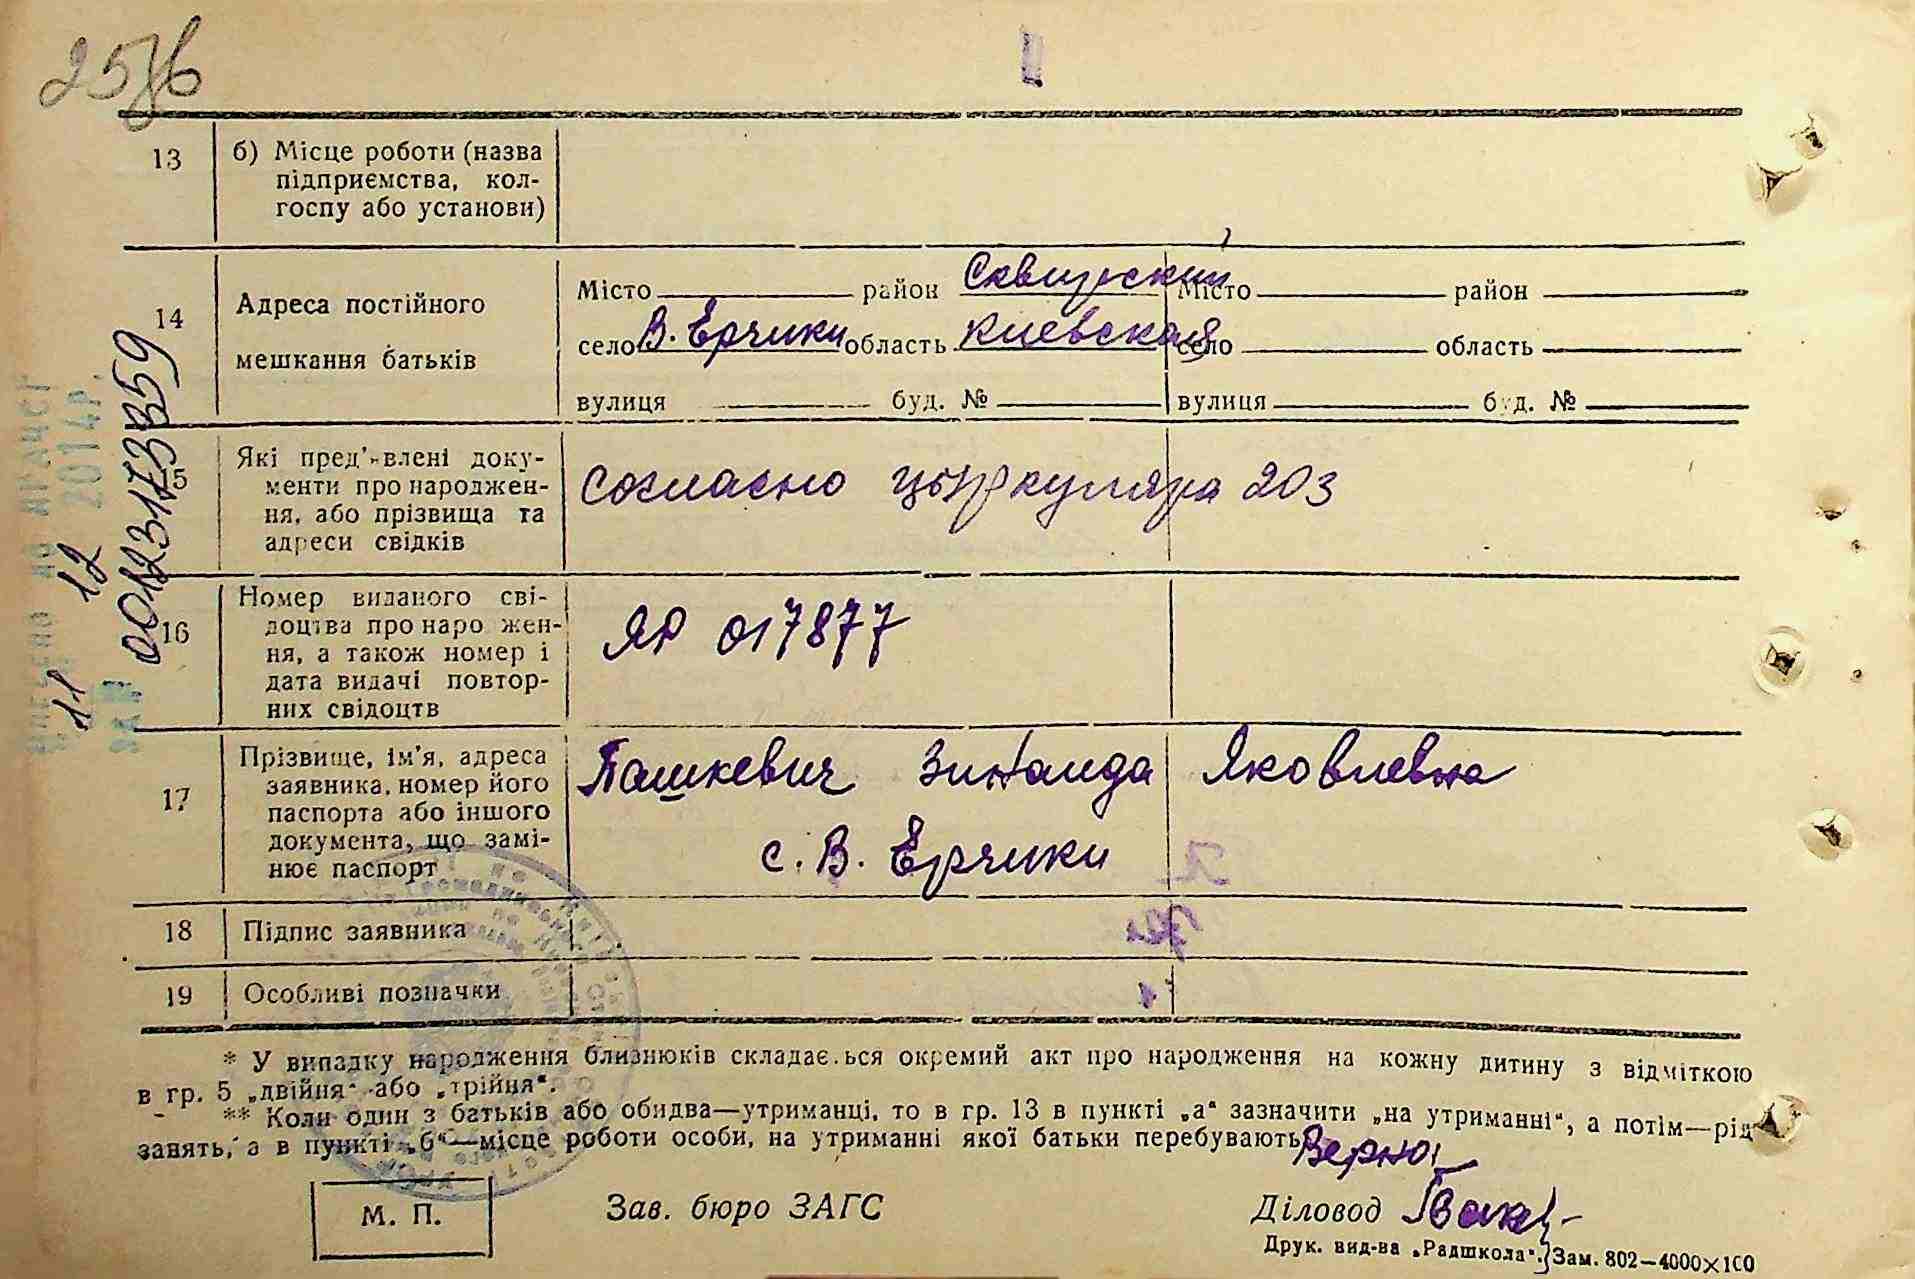 13 б) Місце роботи (назва
підприємства, кол-
госпу або установи)
14 Адреса постійного
мешкання батьків
Місто район Сквирский Місто район
село В. Ерчики область Киевская село область
вулиця буд. № вулиця буд. №
5 Які пред'влені доку-
менти про народжен-
ня, або прізвища та
адреси свідків
Согласно цыркуляра 203
16 Номер виданого сві-
доцтва про наро жен-
ня, а також номер і
дата видачі повтор-
них свідоцтв
ЯР 017877
17 Прізвище, ім'я, адреса
заявника, номер його
паспорта або іншого
документа, що замі-
нює паспорт
Пашкевич Зинаида Яковлевна
с. В. Ерчики
18 Підпис заявника
19 Особливі позначки
* У випадку народження близнюків складає.ься окремий акт про народження на кожну дитину з відміткою
в гр. 5 „двійня“ або „трійня“.
** Коли один з батьків або обидва—утриманці, то в гр. 13 в пункті „а“ зазначити „на утриманні“, а потім—рід
занять, а в пункті „б“—місце роботи особи, на утриманні якої батьки перебувають.
Верно:
М. П.
Зав. бюро ЗАГС
Діловод
Друк. вид-ва „Радшкола“. Зам. 802—4000×100
00123173359
11 12 2014р.